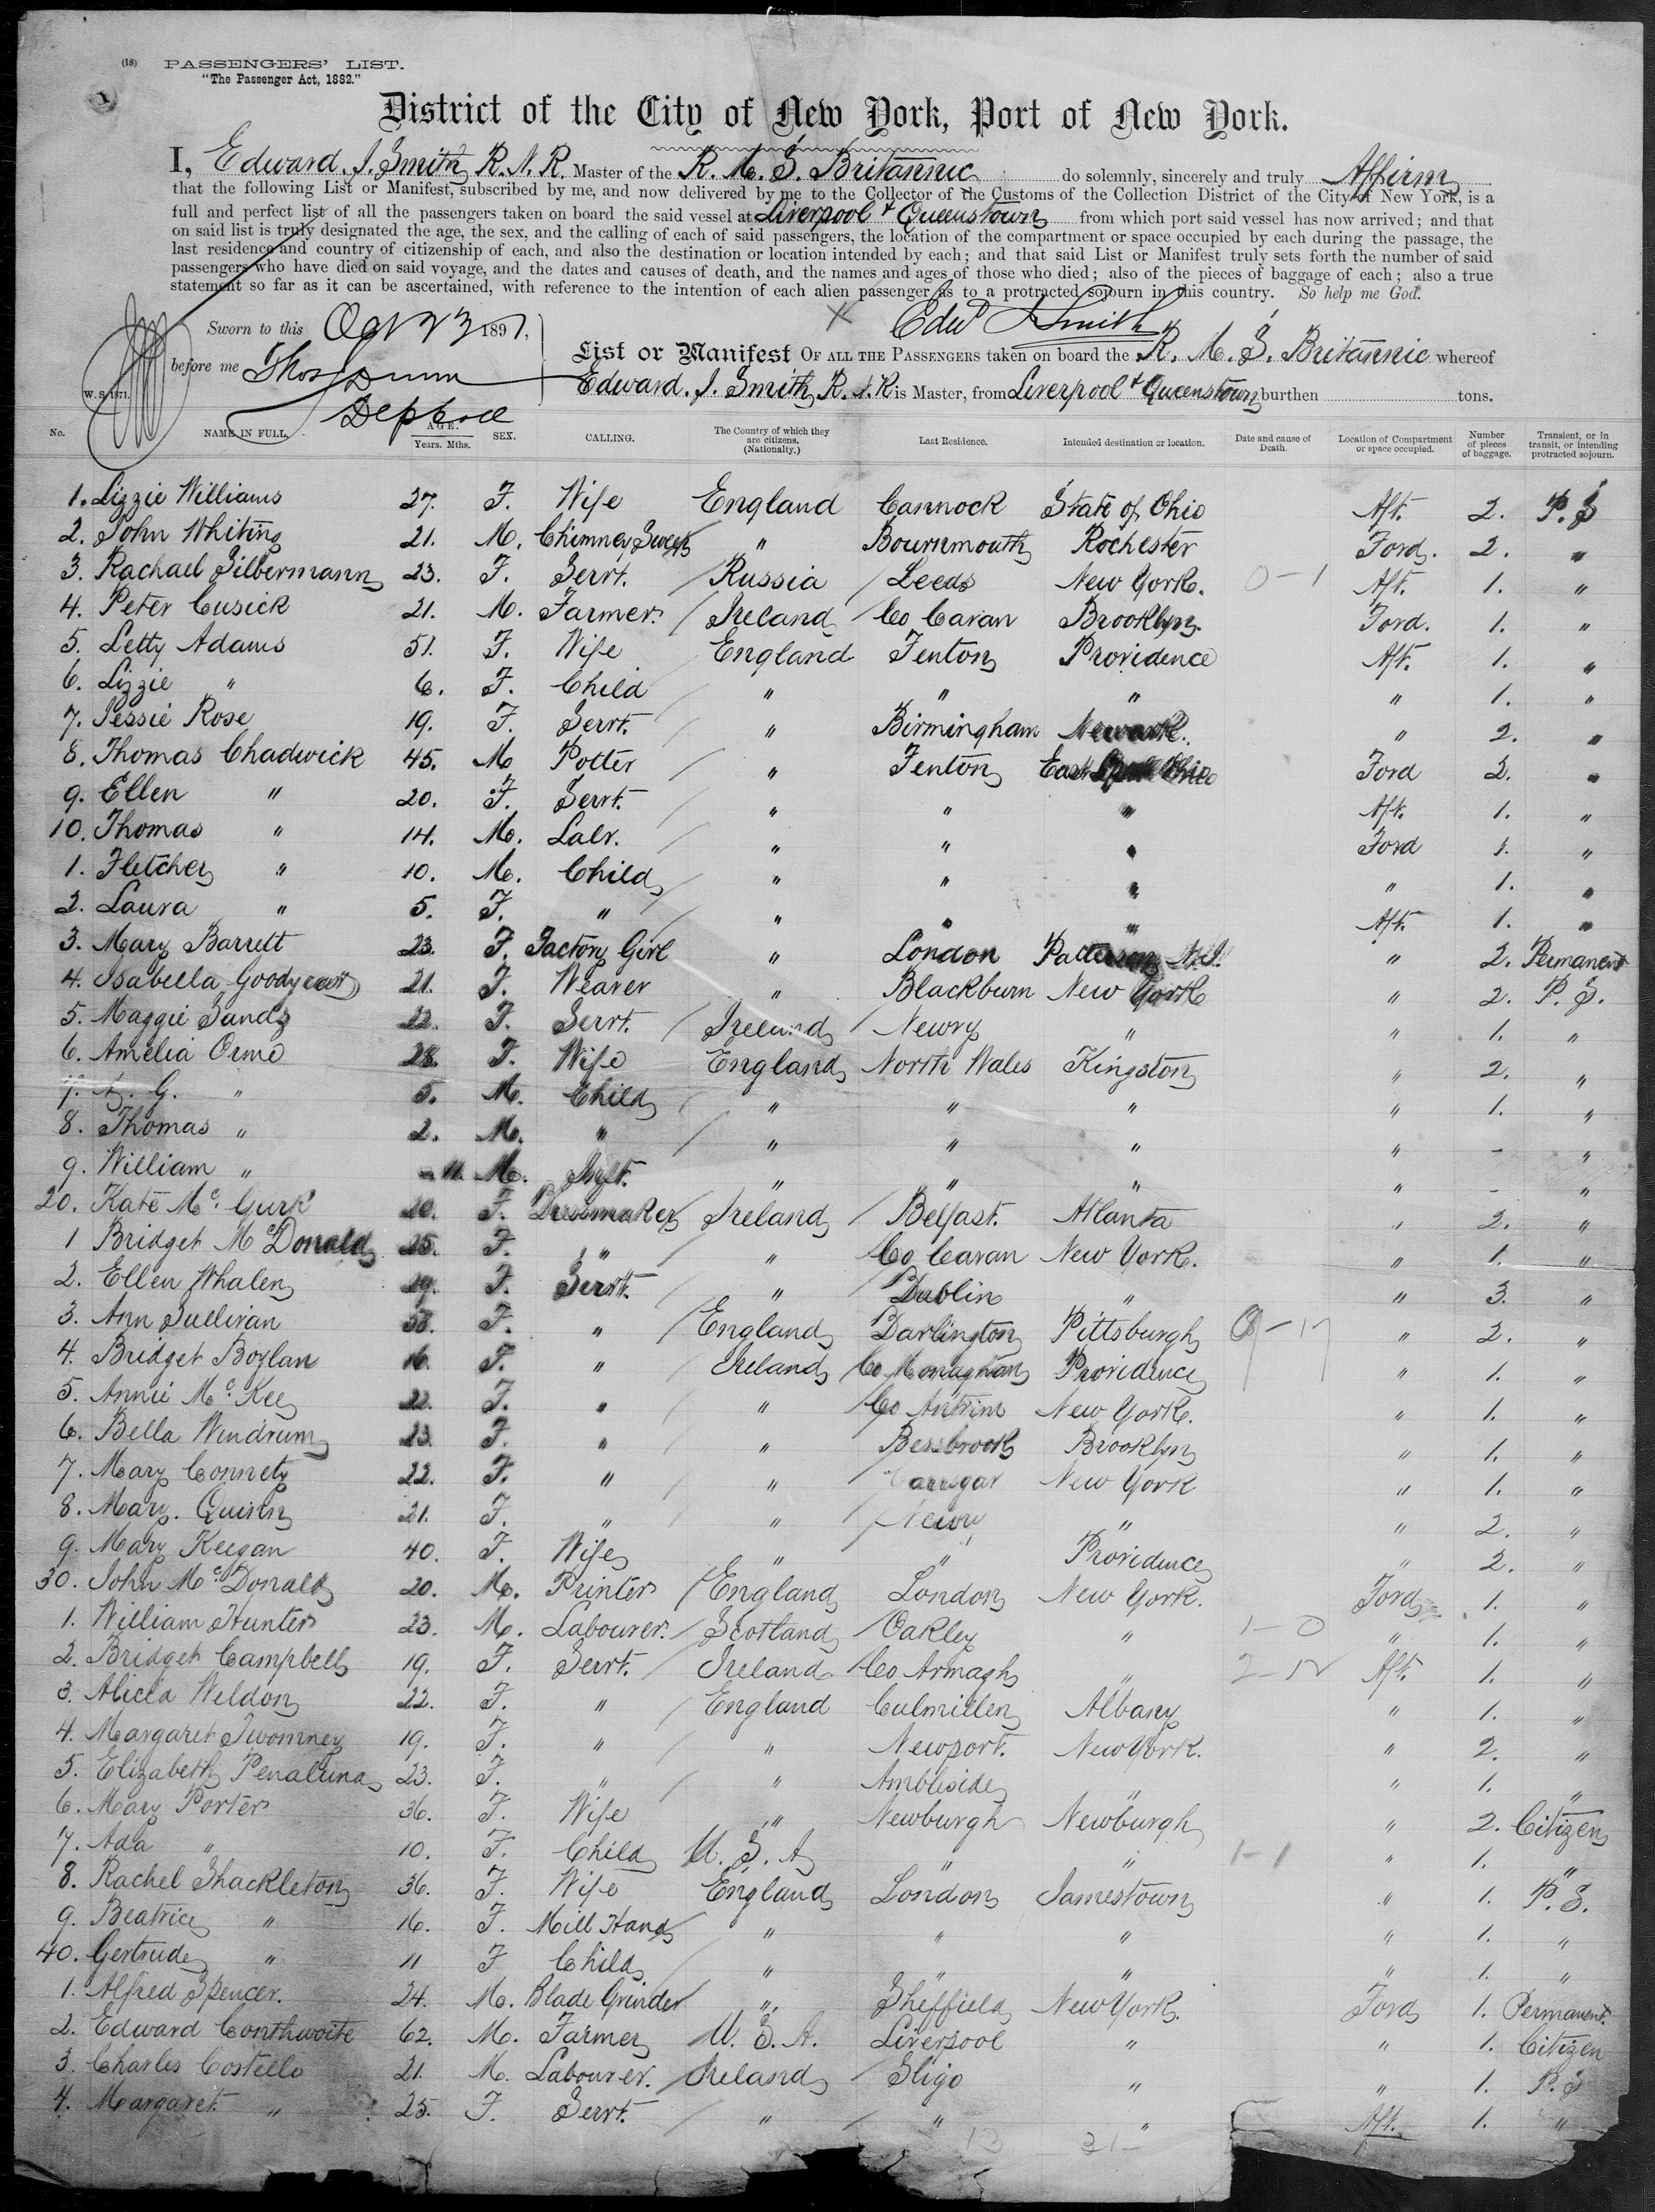 (18) PASSENGERS' LIST.
"The Passenger Act, 1882."
1
District of the City of New York, Port of New York.
I, Edward. J. Smith, R. N. R. Master of the R. M. S. Britannic do solemnly, sincerely and truly Affirm
that the following List or Manifest, subscribed by me, and now delivered by me to the Collector of the Customs of the Collection District of the City of New York, is a
full and perfect list of all the passengers taken on board the said vessel at Liverpool + Queenstown from which port said vessel has now arrived; and that
on said list is truly designated the age, the sex, and the calling of each of said passengers, the location of the compartment or space occupied by each during the passage, the
last residence and country of citizenship of each, and also the destination or location intended by each; and that said List or Manifest truly sets forth the number of said
passengers who have died on said voyage, and the dates and causes of death, and the names and ages of those who died; also of the pieces of baggage of each; also a true
statement so far as it can be ascertained, with reference to the intention of each alien passenger as to a protracted sojourn in this country. So help me God.
Sworn to this Oct 23 1891,
X Edwd J Smith
before me Thos Dunn
List or Manifest OF ALL THE PASSENGERS taken on board the R. M. S. Britannic whereof
W. S. 1871.
Edward. J. Smith, R. N. R is Master, from Liverpool + Queenstown burthen tons.
No. NAME IN FULL. AGE. Years. Mths. SEX. CALLING. The Country of which they are citizens. (Nationality.) Last Residence. Intended destination or location. Date and cause of Death. Location of Compartment or space occupied. Number of pieces of baggage. Transient, or in transit, or intending protracted sojourn.
1. Lizzie Williams 27. F. Wife England Cannock State of Ohio Aft. 2. P. S
2. John Whiting 21. M. Chimney Sweep " Bournmouth Rochester Ford. 2. "
3. Rachael Silbermann 23. F. Servt. / Russia / Leeds New York. 0-1 Aft. 1. "
4. Peter Cusick 21. M. Farmer. / Ireland / Co Cavan Brooklyn. Ford. 1. "
5. Letty Adams 51. F. Wife England Fenton Providence Aft. 1. "
6. Lizzie " 6. F. Child " " " " 1. "
7. Jessie Rose 19. F. Servt. " Birmingham Newark. " 2. "
8. Thomas Chadwick 45. M Potter / " Fenton East Ohio Ford 2. "
9. Ellen " 20. F. Servt. / " " " Aft. 1. "
10. Thomas " 14. M. Labr. / " " " Ford 1. "
1. Fletcher " 10. M. Child / " " " " 1. "
2. Laura " 5. F. " / " " " Aft. 1. "
3. Mary Barrett 23. F. Factory Girl " London Patterson N.J. " 2. Permanent
4. Isabella Goodyear 21. F. Weaver " Blackburn New York " 2. P. S.
5. Maggie Sands 22. F. Servt. / Ireland / Newry " " 1. "
6. Amelia Orme 28. F. Wife England North Wales Kingston " 2. "
7. G. " 5. M. Child " " " " 1. "
8. Thomas " 2. M. " / " " " " - "
9. William " - 11. M. Inft. " " " " - "
20. Kate Mc. Gurk 20. F. Dressmaker Ireland / Belfast. Atlanta " 2. "
1 Bridget McDonald 25. F. " / " / Co Cavan New York. " 1. "
2. Ellen Whalen 29. F. Servt. " / Dublin " " 3. "
3. Ann Sullivan 38. F. " / England Darlington Pittsburgh " 2. "
4. Bridget Boylan 16. F. " Ireland / Co Monaghan Providence " 1. "
5. Annie Mc. Kee 22. F. " " / Co Antrim New York. " 1. "
6. Bella Wendrum 23 F. " " / Bessbrook Brooklyn " 1. "
7. Mary Connety 22. F. " / " New York " 1. "
8. Mary. Quinn 21. F. " / " / Newry " " 2. "
9. Mary Keegan 40. F. Wife " " Providence " 2. "
30. John Mc. Donald 20. M. Printer / England London New York. Ford 1. "
1. William Hunter 23. M. Labourer. / Scotland / Oakley " 1-0 " 1. "
2. Bridget Campbell 19. F. Servt. / Ireland / Co Armagh " Aft. 1. "
3. Alicia Weldon 22. F. " England Culmillen Albany " 1. "
4. Margaret Twomney 19. F. " / " Newport. New York. " 2. "
5. Elizabeth Penaluna 23. F. " / " Ambleside " " 1. "
6. Mary Porter 36. F. Wife " Newburgh Newburgh " 2. Citizen
7. Ada " 10. F. Child U. S. A " " 1-1 " 1. "
8. Rachel Shackleton 36. F. Wife England London Jamestown " 1. P. S.
9. Beatrice " 16. F. Mill Hand " " " " 1. "
40. Gertrude " 11 F Child " " " " 1. "
1. Alfred Spencer. 24. M. Blade Grinder " Sheffield New York. Ford 1. Permanent.
2. Edward Conthwaite 62. M. Farmer U. S. A. Liverpool " " 1. Citizen
3. Charles Costello 21. M. Labourer. / Ireland / Sligo " " 1. P. S
4. Margaret " 25. F. Servt. / " / " " Aft. 1. "
13 31-